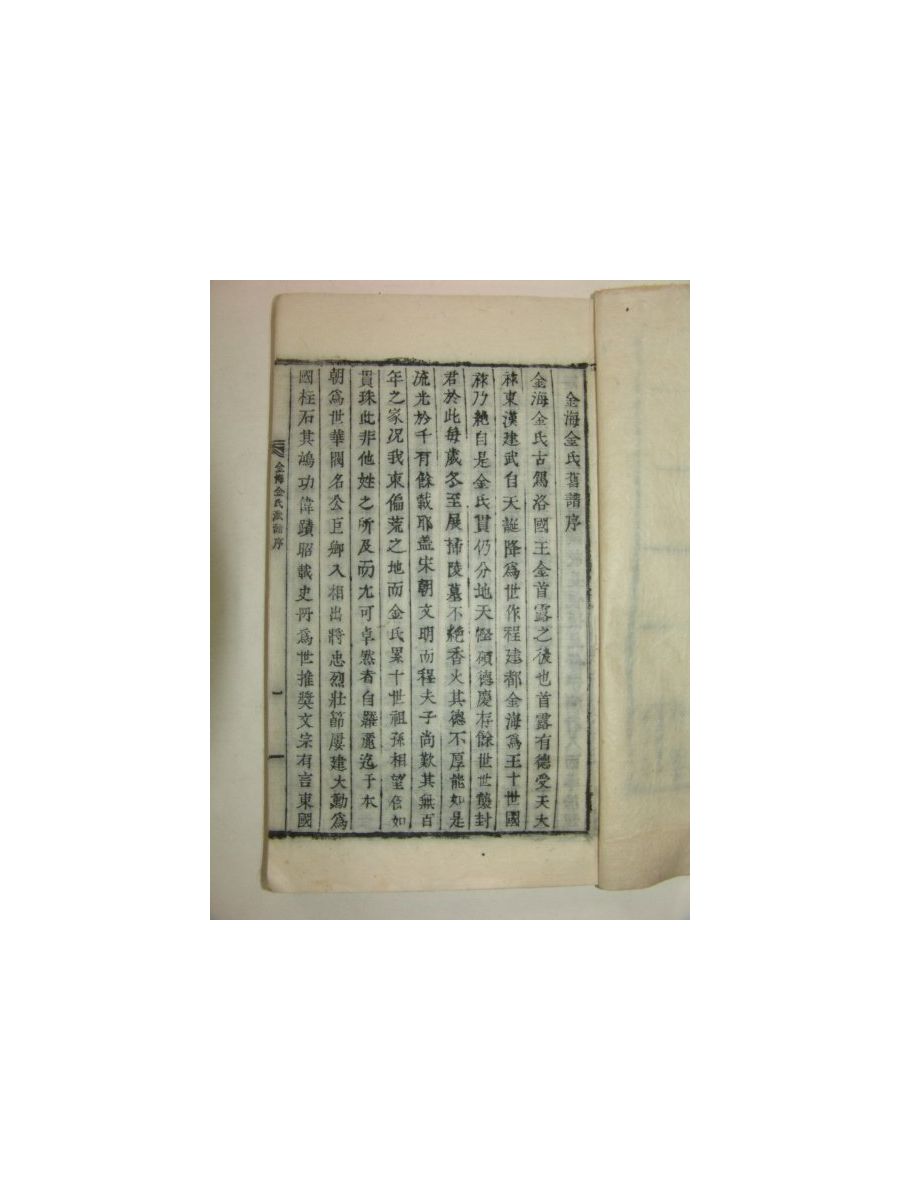 金海金氏舊譜序
金海金氏古駕洛國王金首露之後也首露有德受天大
祿東漢建武自天誕降爲世作程建都金海爲王十世國
祚乃絶自是金氏貫仍分地天慳碩德慶存餘世世襲封
君於此每歲冬至展掃陵墓不絶香火其德不厚能如是
流光於千有餘載耶盖宋朝文明而程夫子尚歎其無百
年之家况我東偏荒之地而金氏累十世祖孫相望信如
貫珠此非他姓之所及而尤可卓然者自羅麗迄于本
朝爲世華閥名公巨卿入相出將忠烈壯節屢建大勳爲
國柱石其鴻功偉蹟昭載史册爲世推奬文宗有言東國
金海金氏派譜序
一